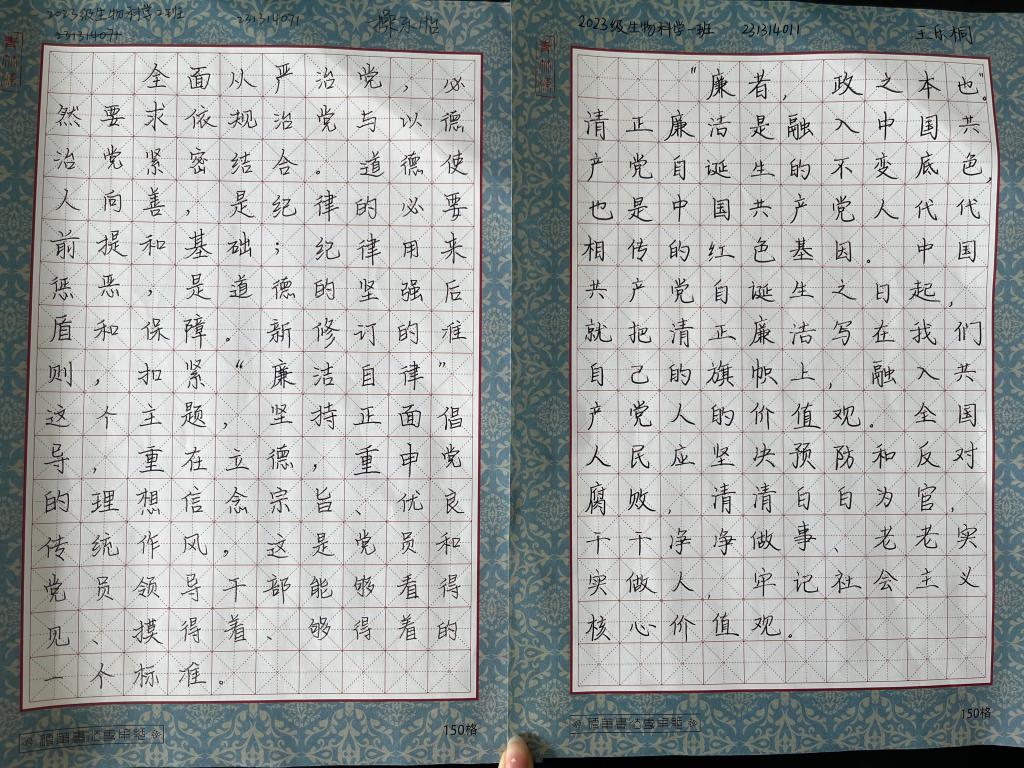 2023级生物科学2班 231314071 操乐怡
231314071
全面从严治党，必
然要求依规治党与以德
治党紧密结合。道德使
人向善，是纪律的必要
前提和基础；纪律用来
惩恶，是道德的坚强后
盾和保障。新修订的准
则，扣紧“廉洁自律”
这个主题，坚持正面倡
导，重在立德，重申党
的理想信念宗旨、优良
传统作风，这是党员和
党员领导干部能够看得
见、摸得着、够得着的
一个标准。
150格
2023级生物科学一班 231314011 王乐桐
“廉者，政之本也”。
清正廉洁是融入中国共
产党自诞生的不变底色，
也是中国共产党人代代
相传的红色基因。中国
共产党自诞生之日起，
就把清正廉洁写在我们
自己的旗帜上，融入共
产党人的价值观。全国
人民应坚决预防和反对
腐败，清清白白为官，
干干净净做事、老老实
实做人，牢记社会主义
核心价值观。
150格